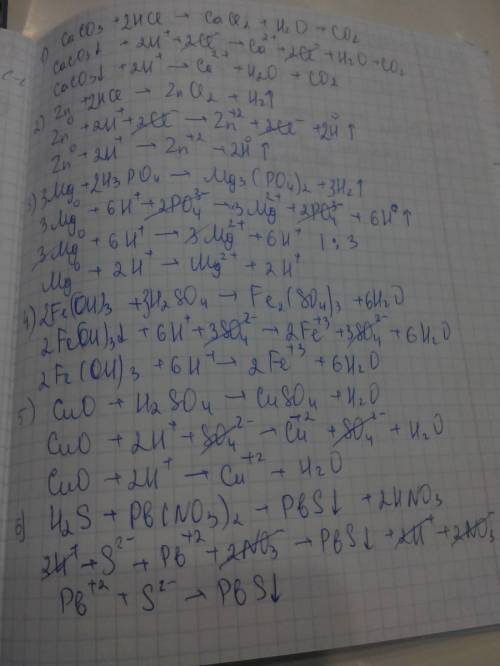 1) CaCO3 + 2HCl → CaCl2 + H2O + CO2
CaCO3↓ + 2H⁺ + 2Cl⁻ → Ca²⁺ + 2Cl⁻ + H2O + CO2
CaCO3↓ + 2H⁺ → Ca²⁺ + H2O + CO2
2) Zn + 2HCl → ZnCl2 + H2↑
Zn⁰ + 2H⁺ + 2Cl⁻ → Zn⁺² + 2Cl⁻ + 2H⁰↑
Zn⁰ + 2H⁺ → Zn⁺² + 2H⁰↑
3) 3Mg + 2H3PO4 → Mg3(PO4)2 + 3H2↑
3Mg⁰ + 6H⁺ + 2PO4³⁻ → 3Mg²⁺ + 2PO4³⁻ + 6H⁰↑
3Mg⁰ + 6H⁺ → 3Mg²⁺ + 6H⁺ | : 3
Mg⁰ + 2H⁺ → Mg²⁺ + 2H⁺
4) 2Fe(OH)3 + 3H2SO4 → Fe2(SO4)3 + 6H2O
2Fe(OH)3↓ + 6H⁺ + 3SO4²⁻ → 2Fe⁺³ + 3SO4²⁻ + 6H2O
2Fe(OH)3 + 6H⁺ → 2Fe⁺³ + 6H2O
5) CuO + H2SO4 → CuSO4 + H2O
CuO + 2H⁺ + SO4²⁻ → Cu⁺² + SO4²⁻ + H2O
CuO + 2H⁺ → Cu⁺² + H2O
6) H2S + Pb(NO3)2 → PbS↓ + 2HNO3
2H⁺ + S²⁻ + Pb⁺² + 2NO3⁻ → PbS↓ + 2H⁺ + 2NO3⁻
Pb⁺² + S²⁻ → PbS↓